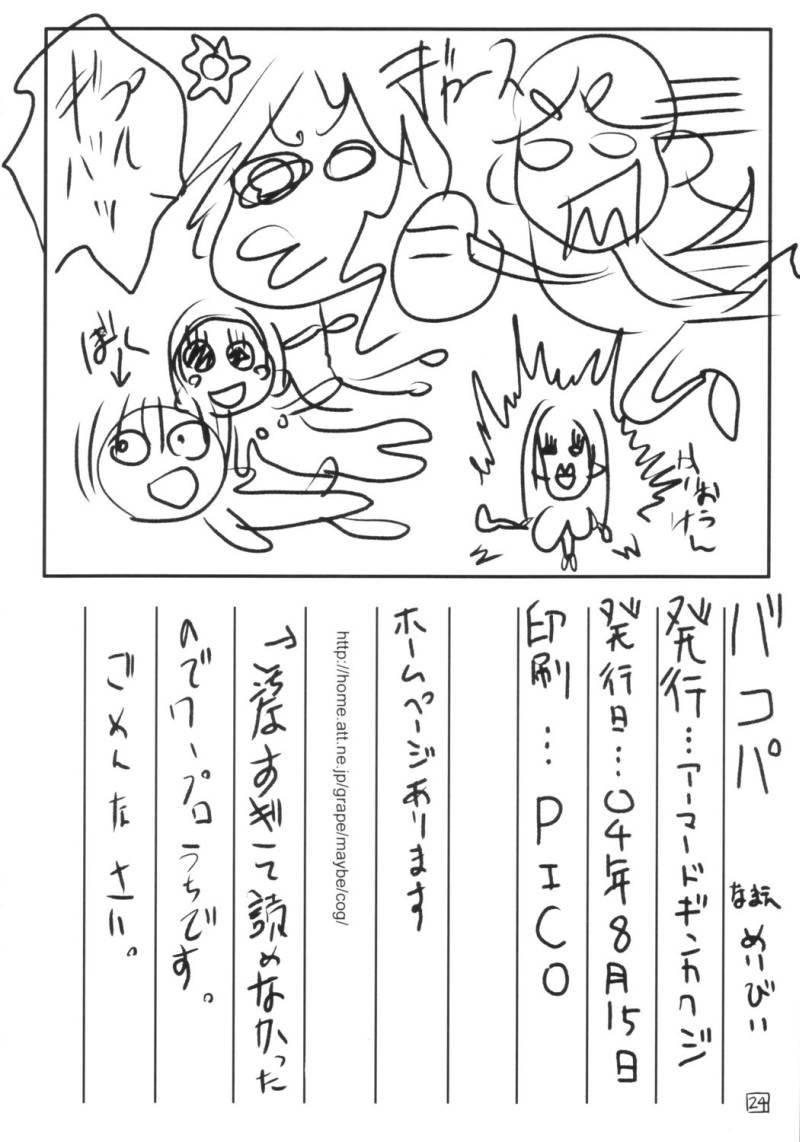 ギャース
ギブルバーッ
ばーん
はりおうけん
バコパ
なまえ めいびい
発行…アーマードギンカクジ
発行日…04年8月15日
印刷…PICO
ホームページあります
http://home.att.ne.jp/grape/maybe/cog/
すぎて読めなかった
のでワープロうちです。
ごめんなさい。
24